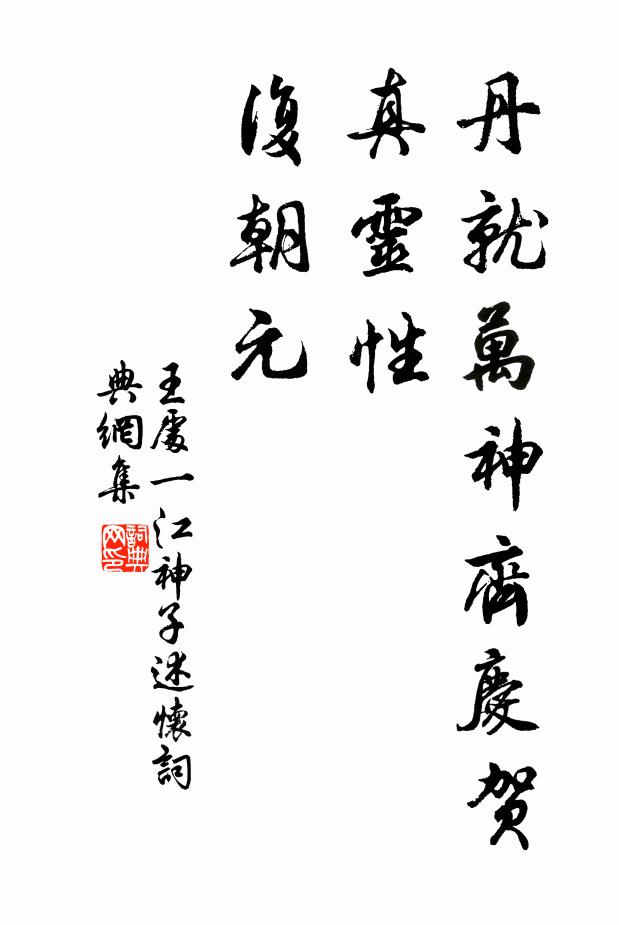 丹就萬神齊慶賀
真靈性
復朝元
王處一江神子述懷詞
典網集
詞典
网印